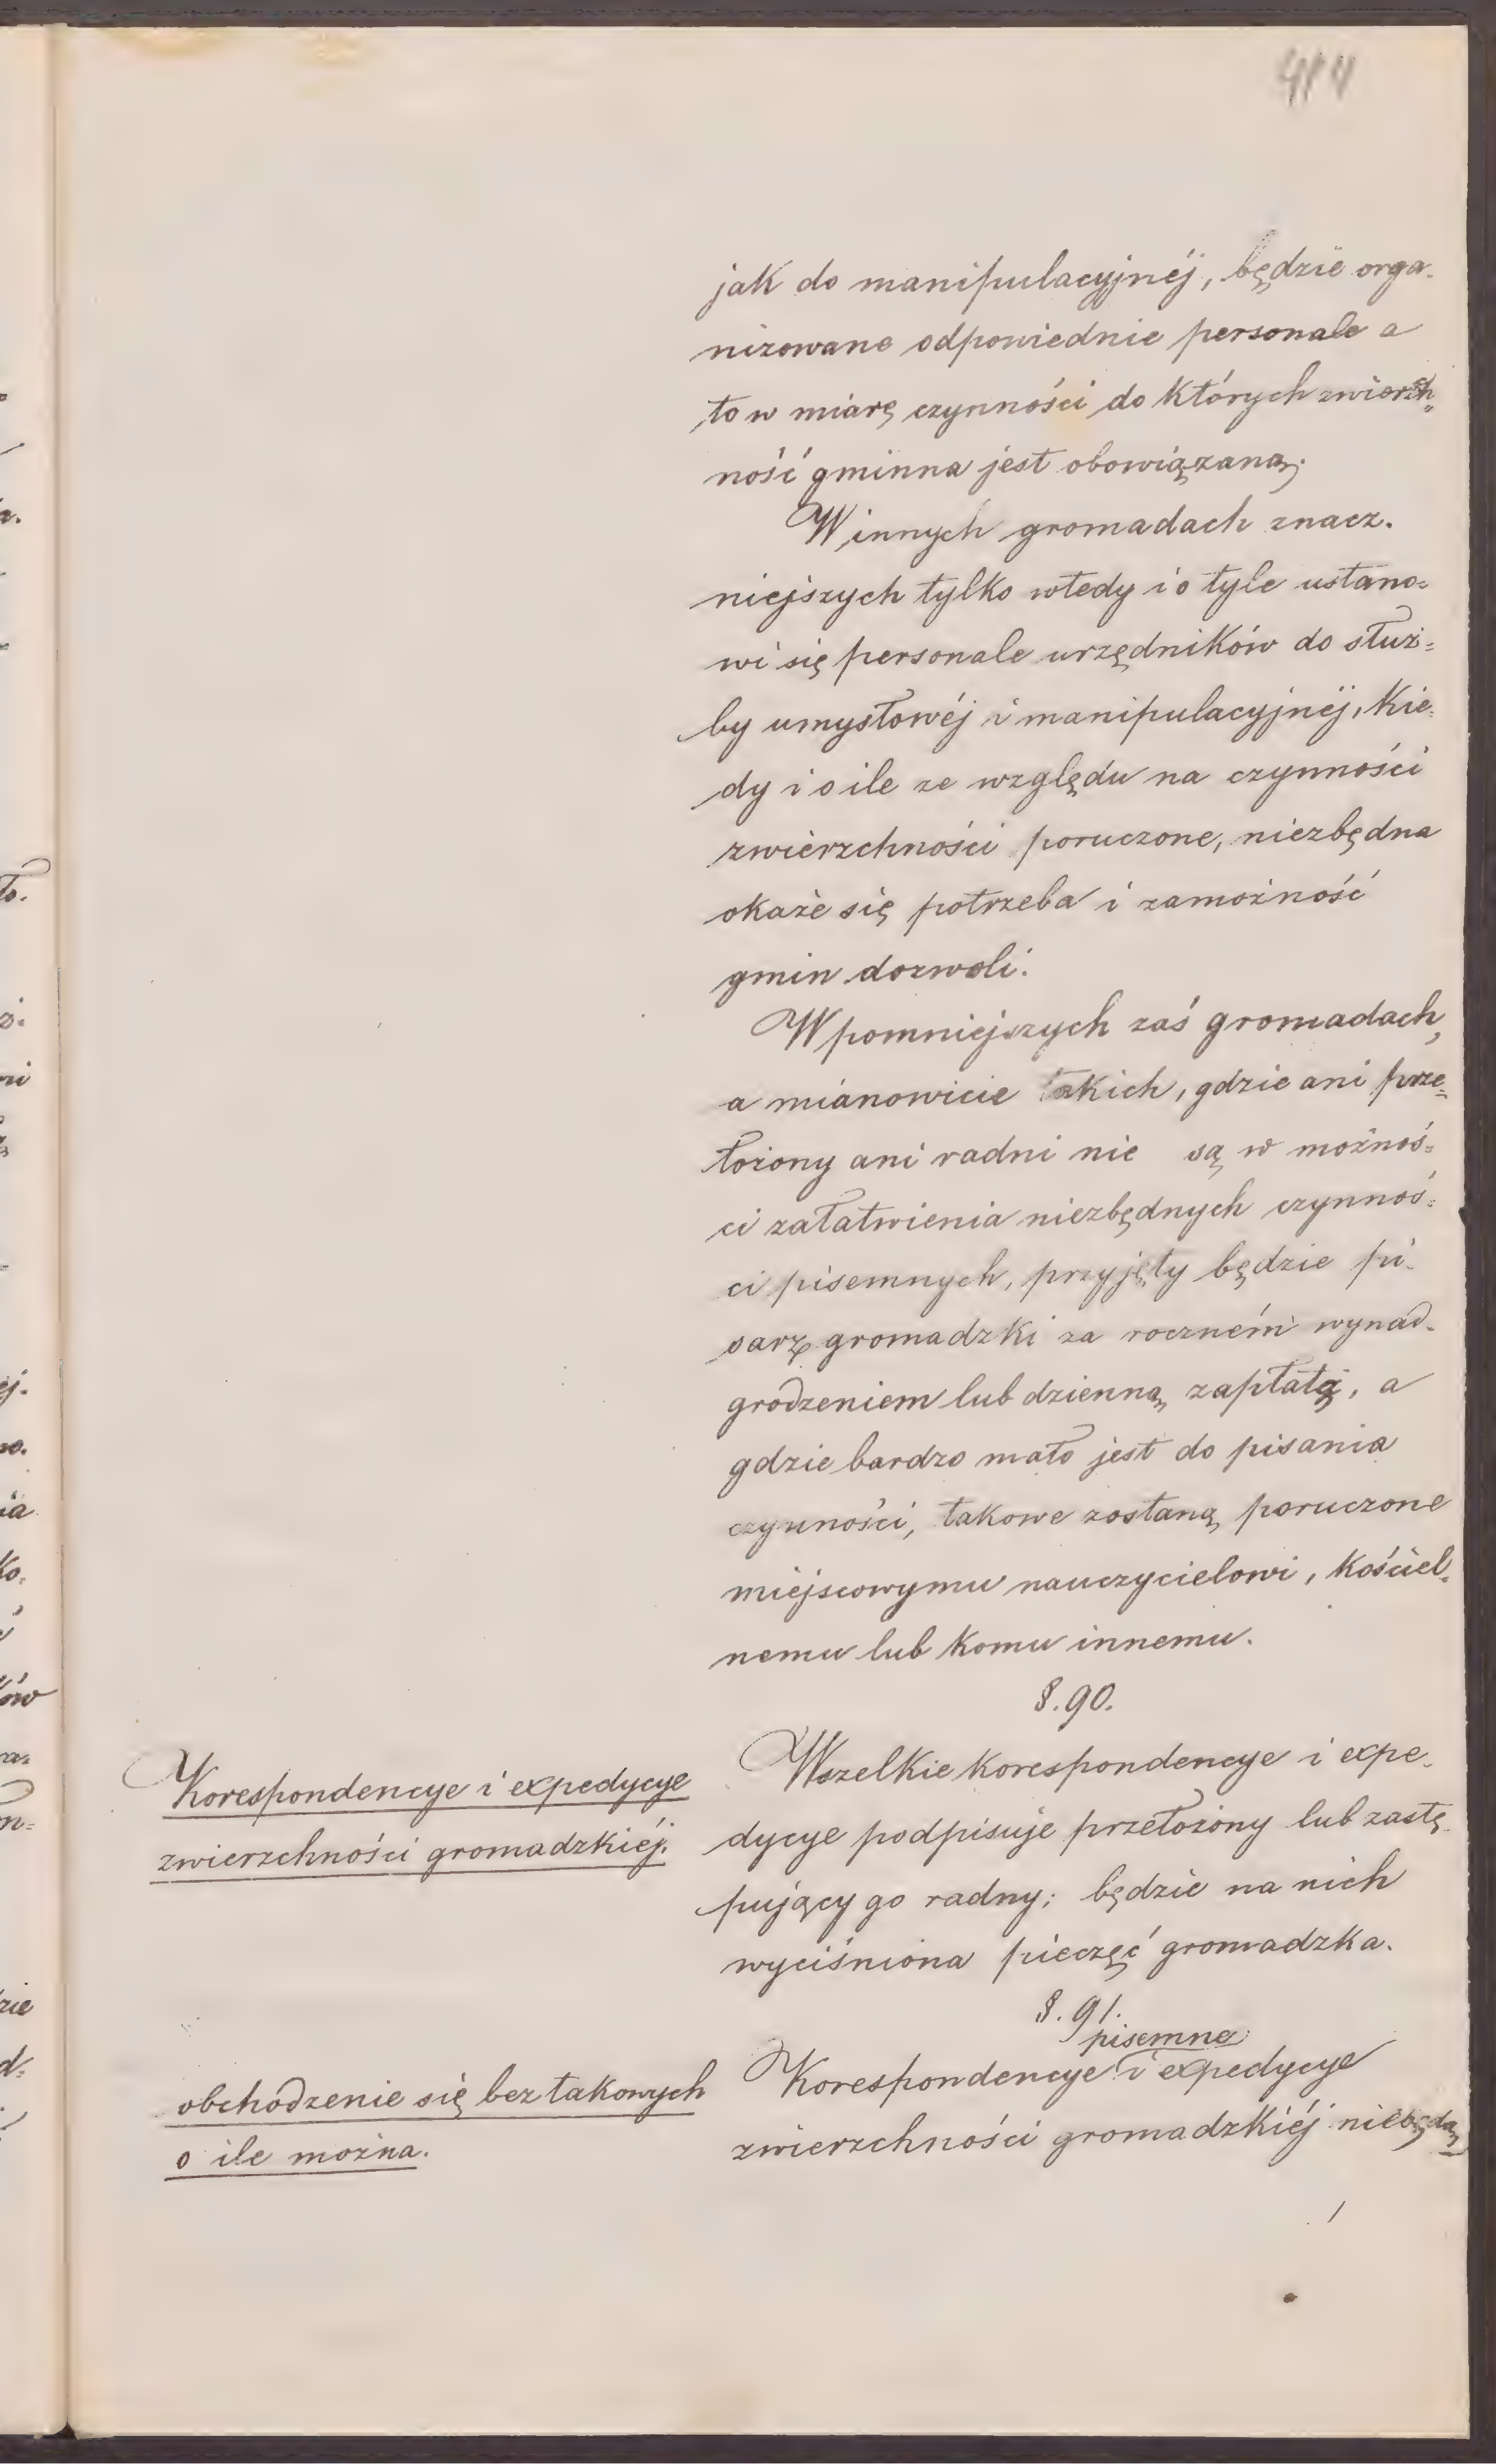 414
jak do manipulacyjnéj, będzie orga-
nizowane odpowiednie personale a
to w miarę czynności do których zwierzch=
ność gminna jest obowiązaną.
W innych gromadach znacz-
niejszych tylko wtedy i o tyle ustano=
wi się personale urzędników do służ=
by umysłowéj i manipulacyjnéj, kie-
dy i o ile ze względu na czynności
zwierzchności poruczone, niezbędna
okaże się potrzeba i zamożność
gmin dozwoli.
W pomniejszych zaś gromadach,
a mianowicie takich, gdzie ani prze=
łożony ani radni nie są w możnoś=
ci załatwienia niezbędnych czynnoś=
ci pisemnych, przyjęty będzie pi-
sarz gromadzki za roczném wynad-
grodzeniem lub dzienną zapłatą, a
gdzie bardzo mało jest do pisania
czynności, takowe zostaną poruczone
miejscowymu nauczycielowi, kościel-
nemu lub komu innemu.
§. 90.
Korespondencye i expedycye
zwierzchności gromadzkiéj.
Wszelkie korespondencye i expe-
dycye podpisuje przełożony lub zastę-
pujący go radny; będzie na nich
wyciśniona pieczęć gromadzka.
§. 91.
obchodzenie się bez takowych
o ile można.
pisemne
Korespondencye i expedycye
zwierzchności gromadzkiéj niebędą